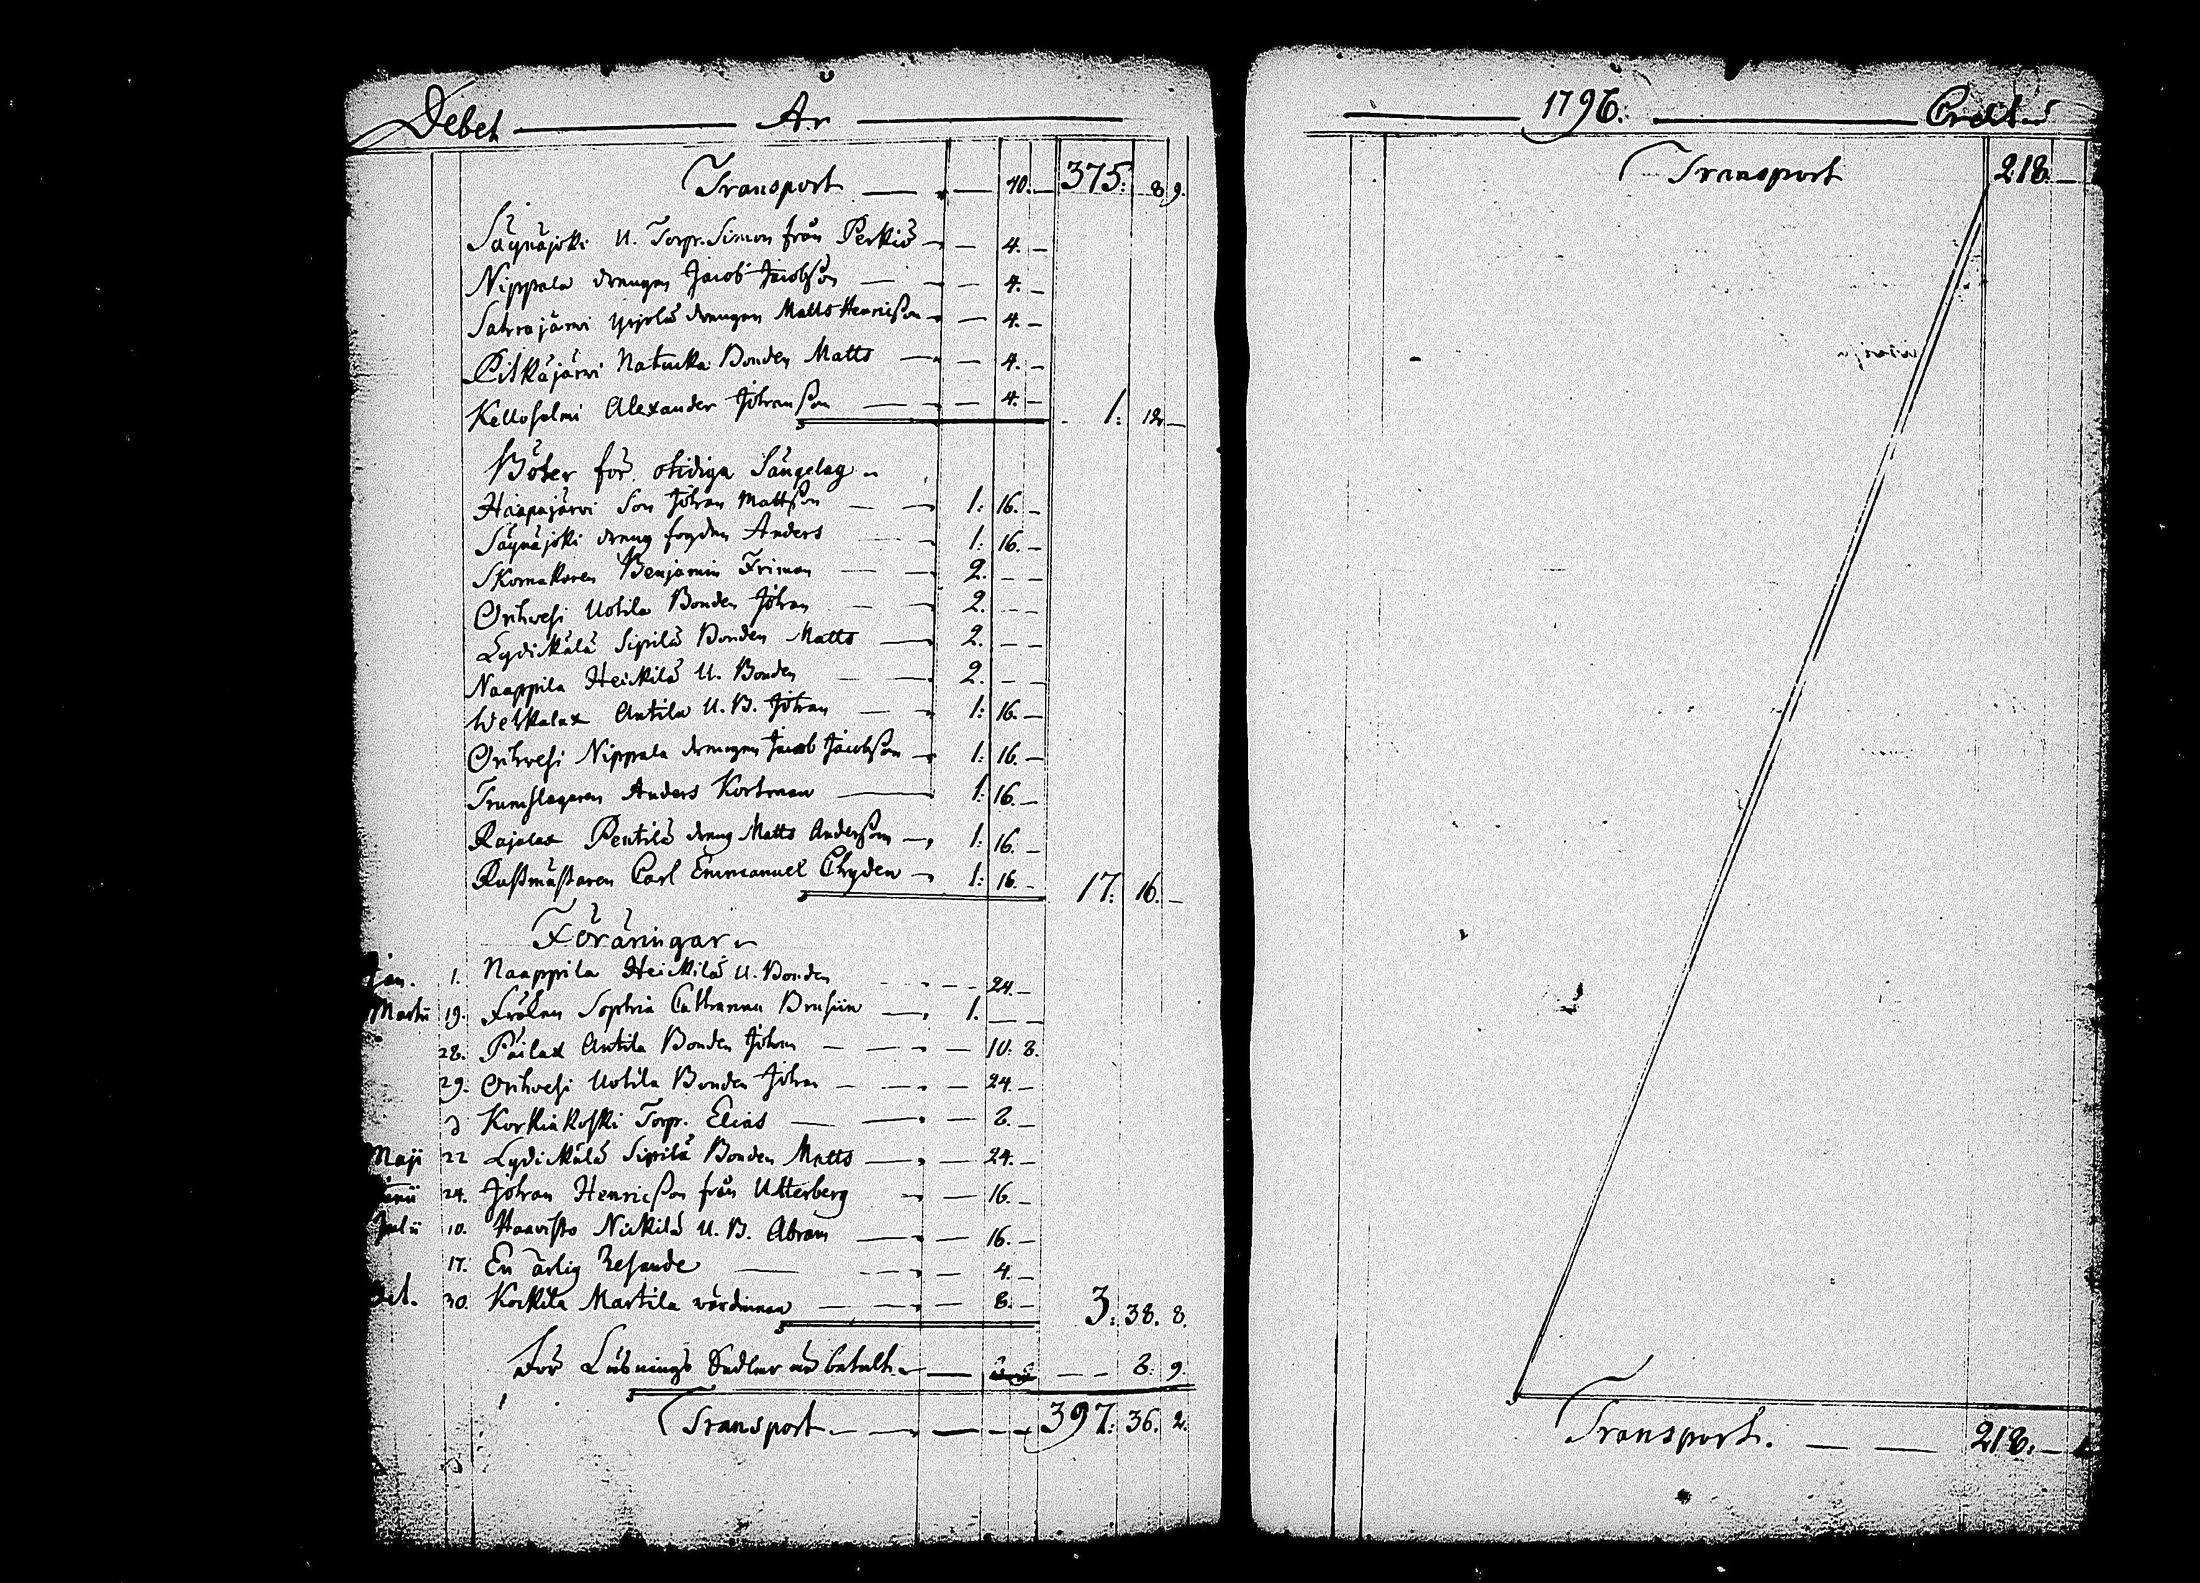 Debet — År —
Transport — — 40. — 375: 8 9.
Säynäjoki U. Torpr. Simon från Perkiö — — 4. —
Nippala drengen Jacob Jacobsson — — 4. —
Sahrajärvi Yrjölä drengen Matts Henricsson — — 4. —
Pitkäjärvi Natucka Bonden Matts — — 4. —
Kellosalmi Alexander Johansson — — 4. — 1: 12 —
Böter för otidiga Sängelag
Haapajärvi Son Johan Mattsson — 1: 16. —
Säynäjoki dreng fogden Anders — 1: 16. —
Skomakaren Benjamin Friman — 2. — —
Orihvesi Uotila Bonden Johan — 2. — —
Lydickälä Sipilä Bonden Matts — 2. — —
Naappila Heickilä U. Bonden — 2. — —
Wehkalax Antila U. B. Johan — 1: 16. —
Orihvesi Nippala drengen Jacob Jacobsson — 1: 16. —
Trumslagaren Anders Kortman — 1: 16. —
Rajalax Pentilä dreng Matts Andersson — 1: 16. —
Rustmästaren Carl Emmanuel Chyden — 1: 16. — 17: 16. —
Föräringar
Jan. 1. Naappila Heickilä U. Bonden — — 24. —
Martii 19. Fröken Sophia Catharina Brusiin — 1. — —
28. Päilax Antila Bonden Johan — — 10: 8.
29. Orihvesi Uotila Bonden Johan — — 24. —
d Korkiakoski Torpr. Elias — — 8. —
Maji 22 Lydickälä Sipilä Bonden Matts — — 24. —
Junii 24. Johan Henricsson från Utterberg — — 16. —
Julii 10. Haavisto Nickilä U. B. Abram — — 16. —
17. En ärlig Resande — — 4. —
Oct. 30. Kockila Martila värdinnan — — 8. — 3: 38. 8.
För Lösnings Sedlar betalt — — — 8: 9.
Transport — — — 397: 36. 2.
— 1796. — Credit
Transport 218. —
Transport. — — 218. —